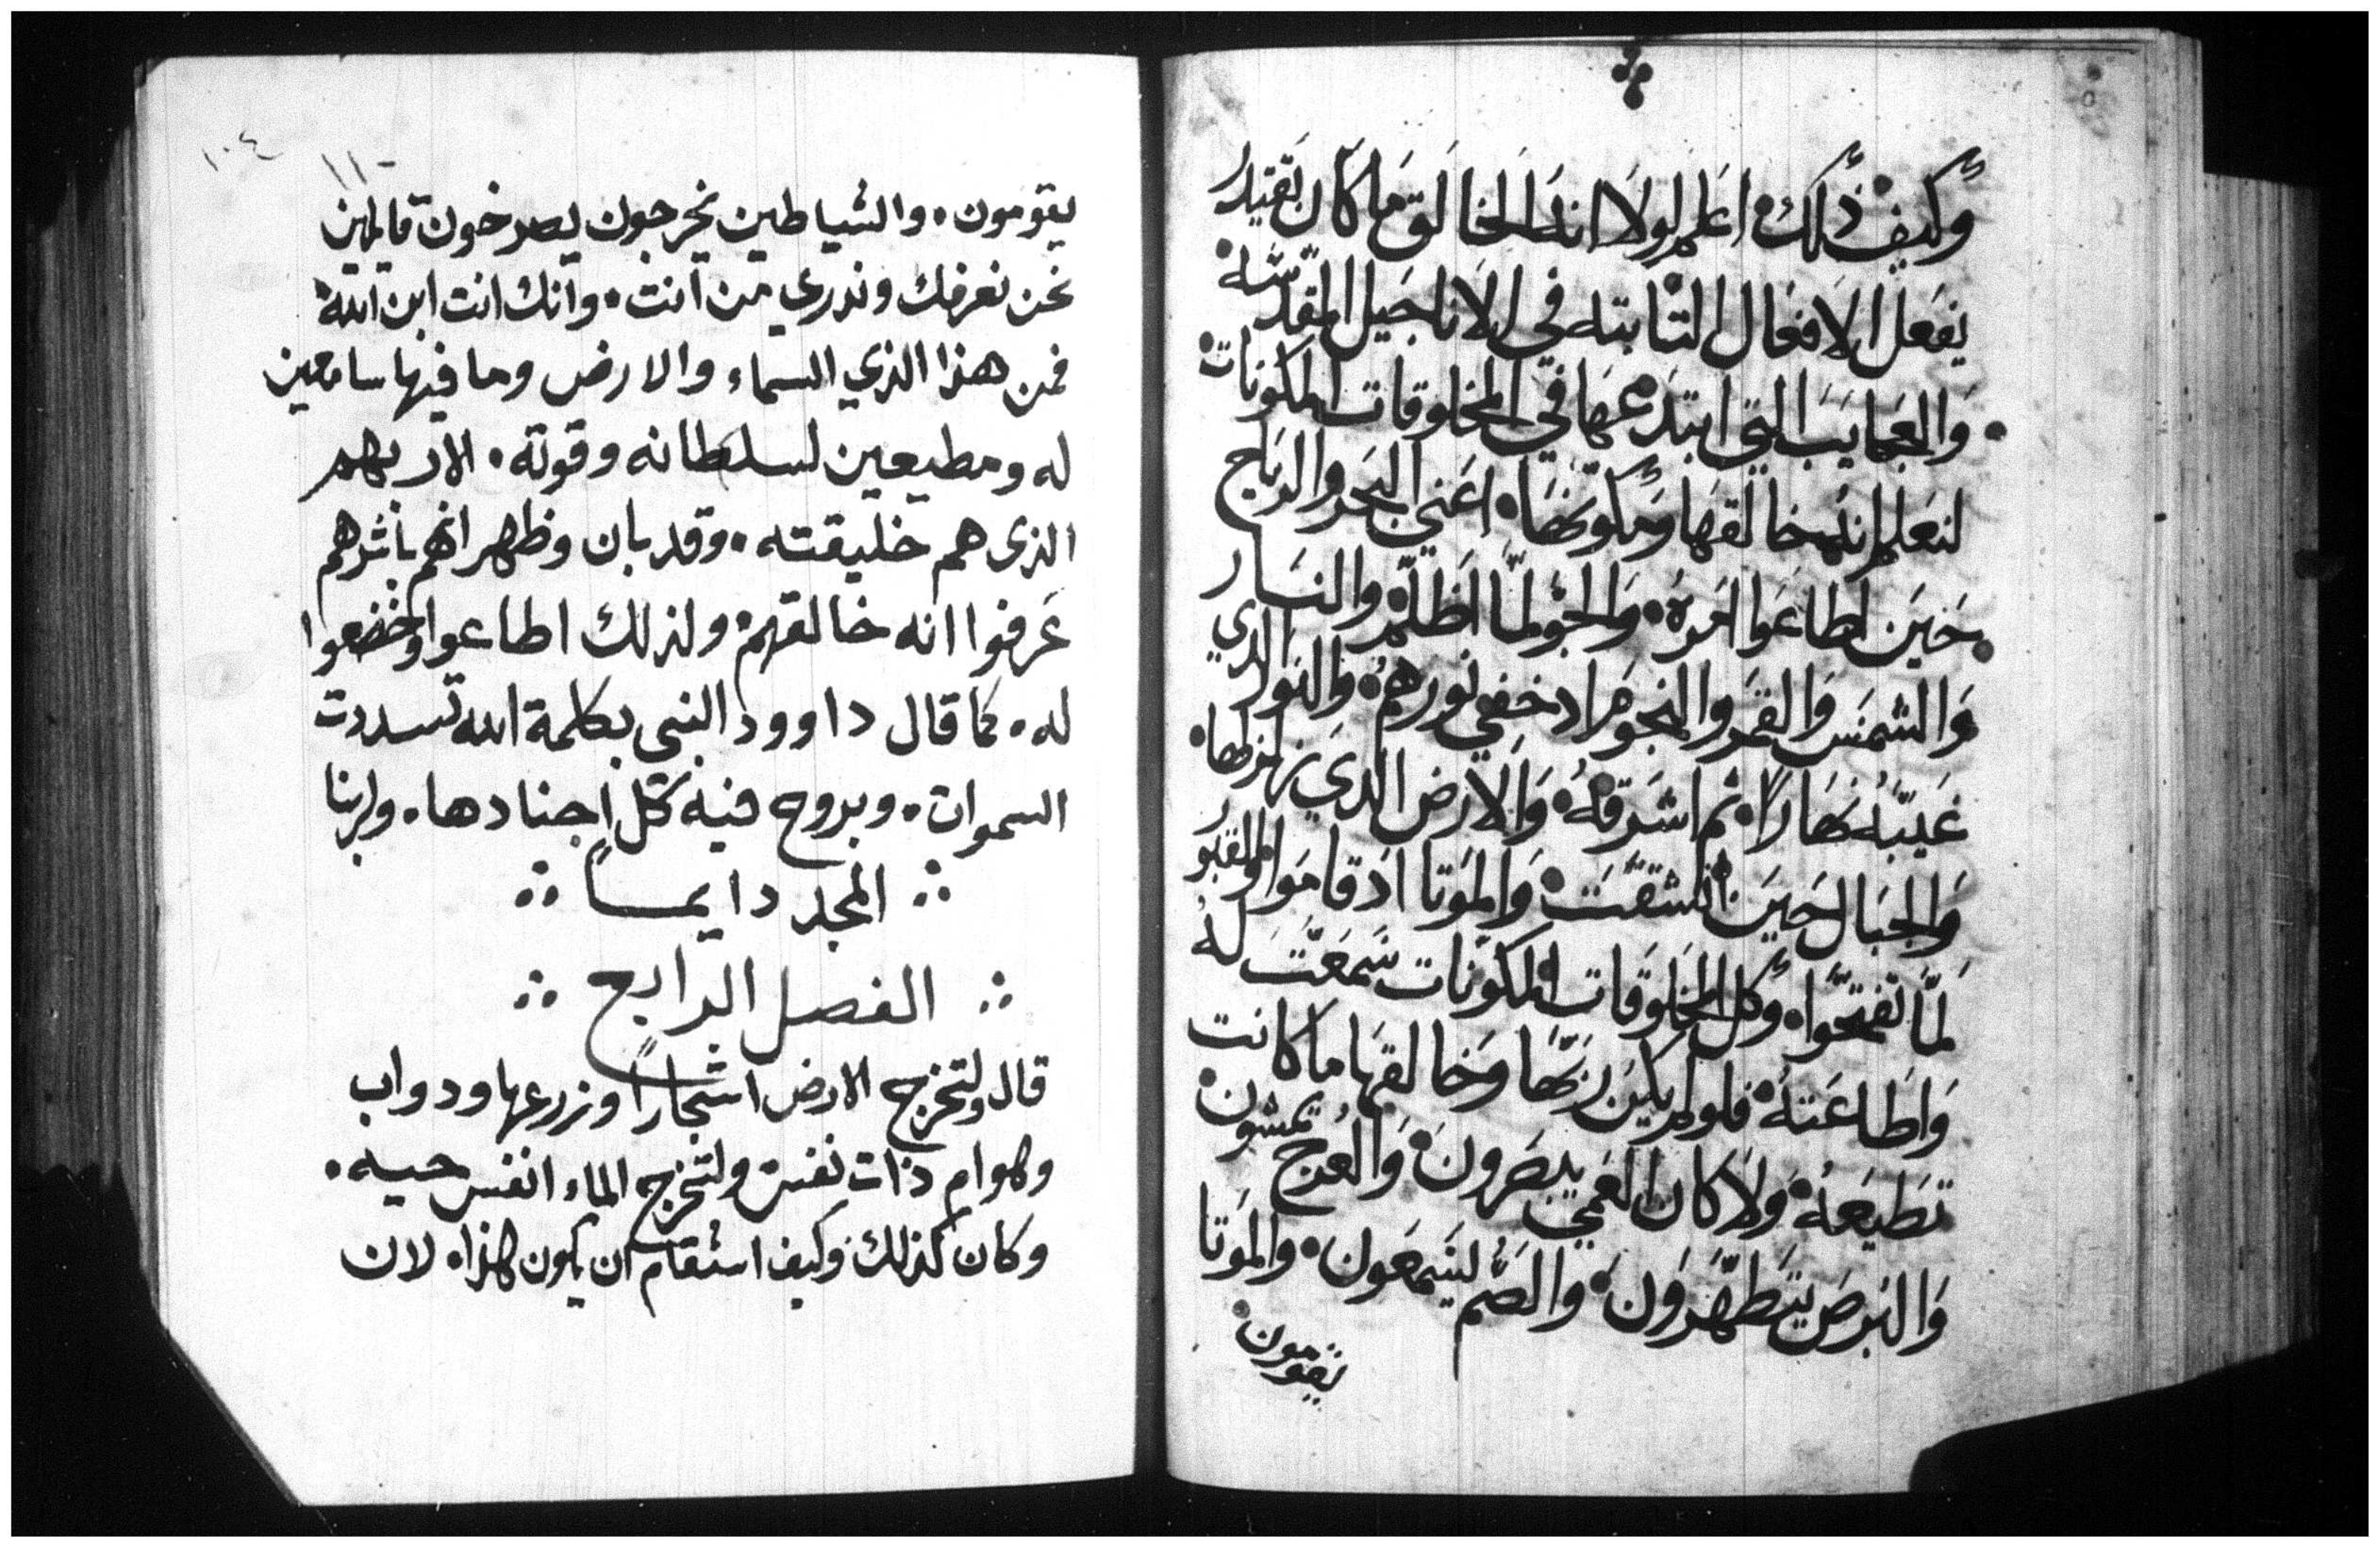 وكيف ذلك اعلم لولا انه الخالق ما كان يقتدر
يفعل الافعال الثابته في الاناجيل المقدسه
والعجايب التي ابتدعها في المخلوقات المكونات
لنعلم انه خالقها ومكونها اعني البحر والرياح
حين اطاعوا امره والجو لما اظلم والنار
والشمس والقمر والنجوم اد خفي نورهم والنور الدي
غيبه نهارا ثم اشرقه والارض الدي زلزلها
والجبال حين انشقت والموتا اد قاموا والقبور
لما تفتحوا وكل المخلوقات المكونات سمعت له
واطاعته فلو لم يكن ربها وخالقها ما كانت
تطيعه ولا كان العمي يبصرون والعرج يمشون
والبرص يتطهرون والصم ليسمعون والموتا
يقومون
١٠٤
يقومون والشياطين يخرجون يصرخون قايلين
نحن نعرفك وندري من انت وانك انت ابن الله
فمن هذا الذي السماء والارض وما فيها سامعين
له ومطيعين لسلطانه وقوته الا ربهم
الذى هم خليقته وقد بان وظهر انهم باثرهم
عرفوا انه خالقهم ولذلك اطاعوا وخضعوا
له كما قال داوود النبى بكلمة الله تسددت
السموات وبروح فيه كل اجنادها ولربنا
المجد دايمــا
الفصل الرابع
قال ولتخرج الارض اشجارا وزرعها ودواب
وهوام ذات نفس ولتخرج الماء انفس حيه
وكان كذلك وكيف استقام ان يكون هذا لان